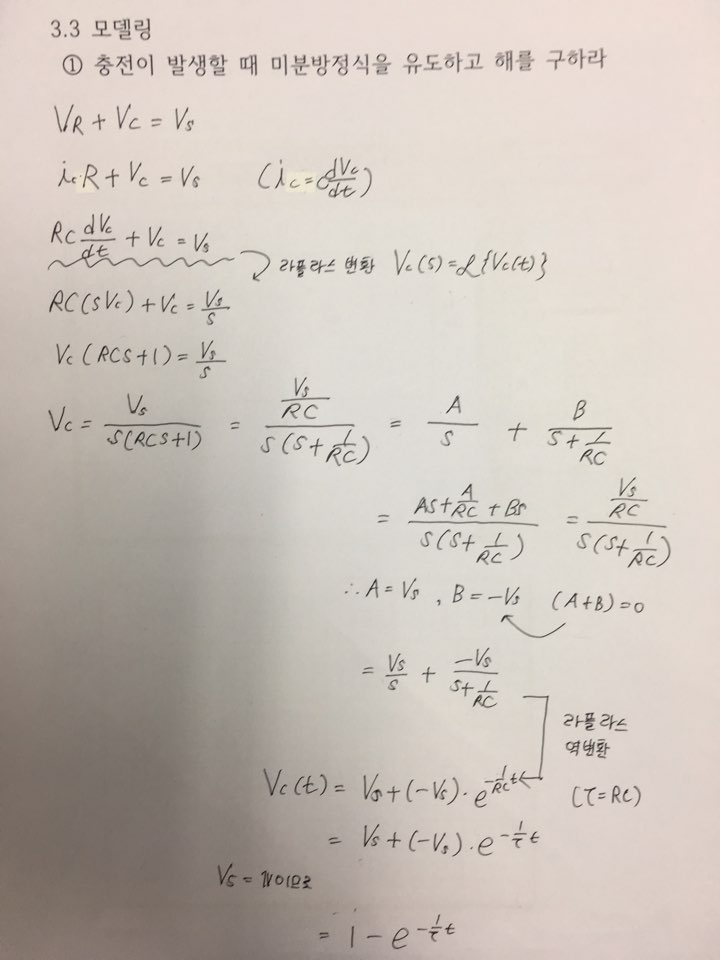 3.3 모델링
① 충전이 발생할 때 미분방정식을 유도하고 해를 구하라
V_R + V_C = V_s
i_c R + V_c = V_s (i_c = C dV_c/dt)
RC dV_c/dt + V_c = V_s
라플라스 변환 V_c(s) = ℒ{V_c(t)}
RC(sV_c) + V_c = V_s/s
V_c(RCS+1) = V_s/s
V_c = V_s/(S(RCS+1)) = (V_s/RC)/(S(S+1/RC)) = A/S + B/(S+1/RC)
= (AS + A/RC + BS)/(S(S+1/RC)) = (V_s/RC)/(S(S+1/RC))
∴ A = V_s , B = -V_s (A+B) = 0
= V_s/s + -V_s/(S+1/RC)
라플라스
역변환
V_c(t) = V_s + (-V_s) · e^(-1/RC t) (τ=RC)
= V_s + (-V_s) · e^(-1/τ t)
V_s = 1V이므로
= 1 - e^(-1/τ t)